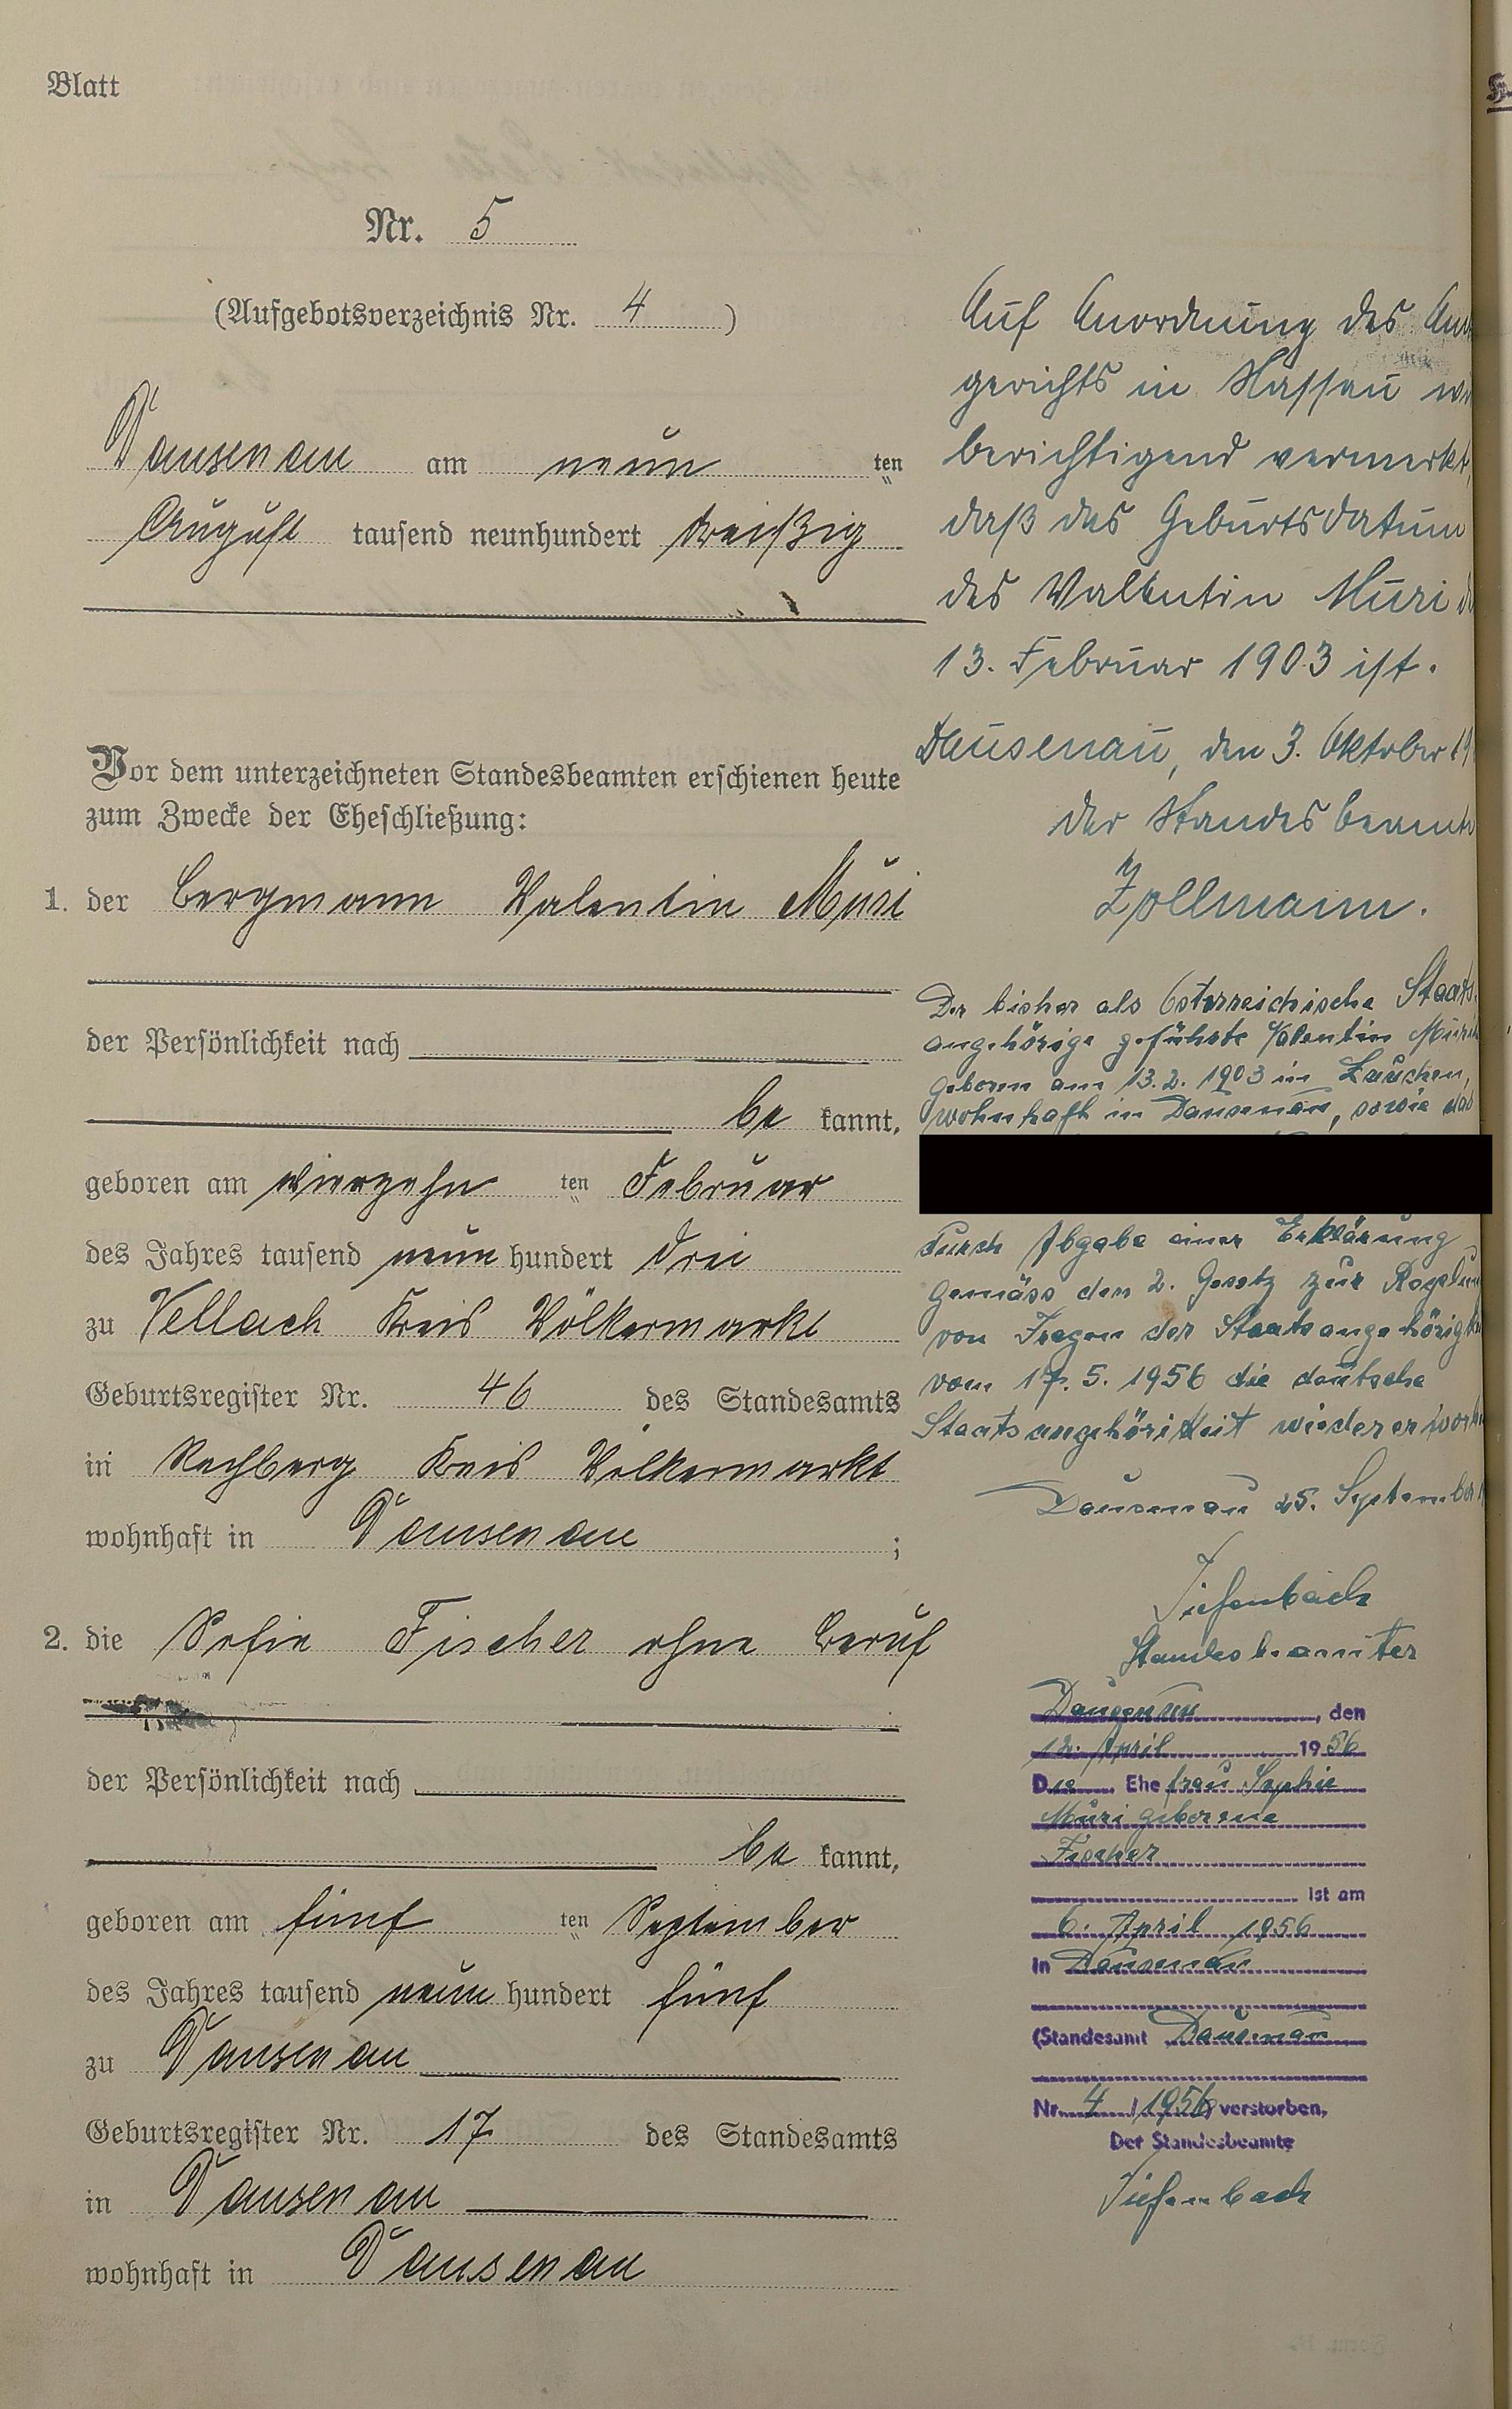 Blatt
Nr. 5
(Aufgebotsverzeichnis Nr. 4)
Dausenau am neun ten
August tausend neunhundert dreißig
Vor dem unterzeichneten Standesbeamten erschienen heute
zum Zwecke der Eheschließung:
1. der Bergmann Valentin Muri
der Persönlichkeit nach
be kannt,
geboren am vierzehn ten Februar
des Jahres tausend neun hundert drei
zu Vellach Kreis Völkermarkt
Geburtsregister Nr. 46 des Standesamts
in Rechberg Kreis Völkermarkt
wohnhaft in Dausenau ;
2. die Sofie Fischer ohne Beruf
der Persönlichkeit nach
be kannt,
geboren am fünf ten September
des Jahres tausend neun hundert fünf
zu Dausenau
Geburtsregister Nr. 17 des Standesamts
in Dausenau
wohnhaft in Dausenau
Auf Anordnung des
gerichts in Nassau
berichtigend vermerkt,
daß das Geburtsdatum
des Valentin Muri
13. Februar 1903 ist.
Dausenau, den 3. Oktober 19
der Standesbeamte
Zollmann.
Der bisher als österreichische Staats-
angehörige geführte Valentin Muri
geboren am 13.2.1903 in
wohnhaft in Dausenau, sowie das
durch Abgabe einer Erklärung
gemäss den 2. Gesetz zur Regelung
von Fragen der Staatsangehörigk
vom 17.5.1956 die deutsche
Staatsangehörikeit wiedererworben
Dausenau 25. September
Tiefenbach
Standesbeamter
Dausenau, den
12. April 1956
Die Ehefrau Sophie
Muri geborene
Fischer
ist am
6. April 1956
in Dausenau
(Standesamt Dausenau
Nr. 4 / 1956) verstorben,
Der Standesbeamte
Tiefenbach